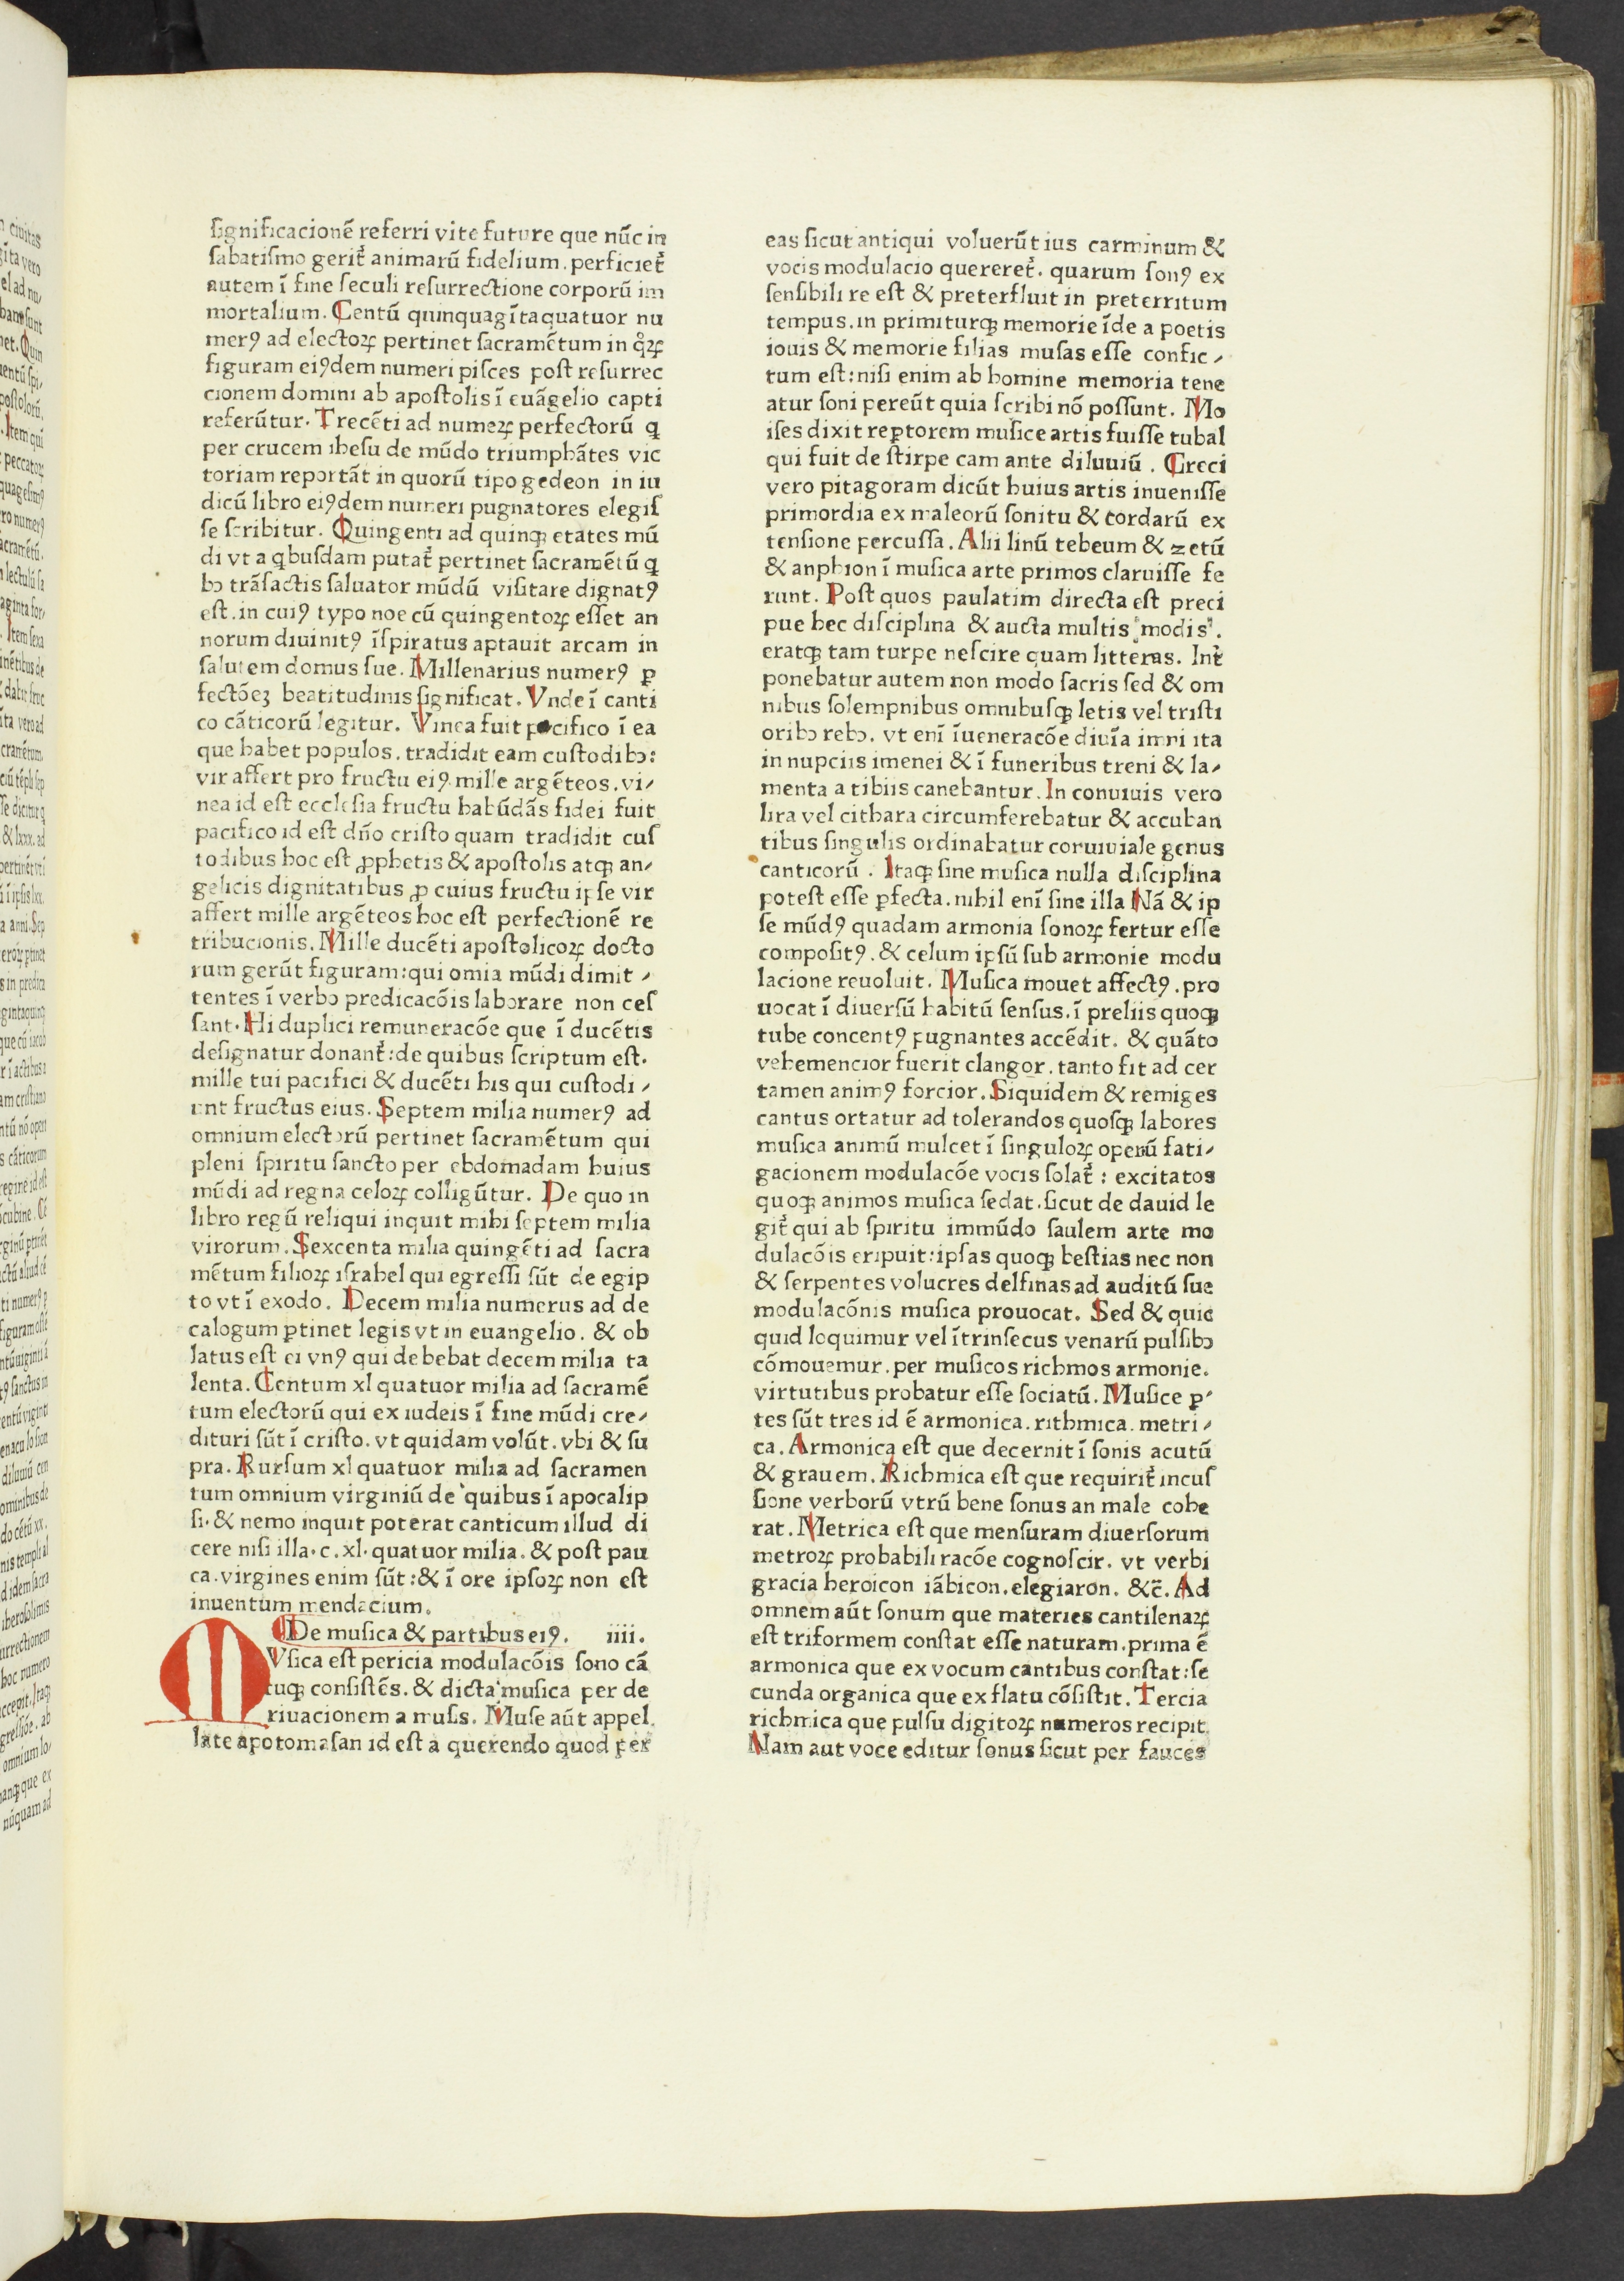 ſignificacionē referri vite future que nūc in
ſabatiſmo gerit᷑ animarū fidelium. perficiet᷑
autem ī fine ſeculi reſurrectione corporū im
mortalium. Centū quinquagītaquatuor nu
merꝯ ad electoꝝ pertinet ſacramētum in qͦꝝ
figuram eiꝯdem numeri piſces poſt reſurrec
cionem domini ab apoſtolis ī euāgelio capti
referūtur. Trecēti ad numeꝝ perfectorū q
per crucem iheſu de mūdo triumphātes vic
toriam reportāt in quorū tipo gedeon in iu
dicū libro eiꝯdem numeri pugnatores elegiſ
ſe ſcribitur. Quingenti ad quinqꝫ etates mū
di vt a qbuſdam putat᷑ pertinet ſacramētū q
bꝰ trāſactis ſaluator mūdū viſitare dignatꝯ
eſt. in cuiꝯ typo noe cū quingentoꝝ eſſet an
norum diuinitꝯ īſpiratus aptauit arcam in
ſalutem domus ſue. Millenarius numerꝯ ꝑ
fectōeꝫ beatitudinis ſignificat. Vnde ī canti
co cāticorū legitur. Vinea fuit pacifico ī ea
que habet populos. tradidit eam cuſtodibꝰ:
vir affert pro fructu eiꝯ. mille argēteos. vi⸗
nea id eſt eccleſia fructu habūdās fidei fuit
pacifico id eſt dn̄o criſto quam tradidit cuſ
todibus hoc eſt ꝓphetis & apoſtolis atqꝫ an⸗
gelicis dignitatibus ꝓ cuius fructu ipſe vir
affert mille argēteos hoc eſt perfectionē re
tribucionis. Mille ducēti apoſtolicoꝝ docto
rum gerūt figuram: qui omia mūdi dimit⸗
tentes ī verbo predicacōis laborare non ceſ
ſant. Hi duplici remuneracōe que ī ducētis
deſignatur donant᷑: de quibus ſcriptum eſt.
mille tui pacifici & ducēti his qui cuſtodi⸗
unt fructus eius. Septem milia numerꝯ ad
omnium electorū pertinet ſacramētum qui
pleni ſpiritu ſancto per ebdomadam huius
mūdi ad regna celoꝝ colligūtur. De quo in
libro regū reliqui inquit mihi ſeptem milia
virorum. Sexcenta milia quingēti ad ſacra
mētum filioꝝ iſrahel qui egreſſi ſūt de egip
to vt ī exodo. Decem milia numerus ad de
calogum ꝑtinet legis vt in euangelio. & ob
latus eſt ei vnꝯ qui debebat decem milia ta
lenta. Centum xl quatuor milia ad ſacramē
tum electorū qui ex iudeis ī fine mūdi cre⸗
dituri ſūt ī criſto. vt quidam volūt. vbi & ſu
pra. Rurſum xl quatuor milia ad ſacramen
tum omnium virginiū de quibus ī apocalip
ſi. & nemo inquit poterat canticum illud di
cere niſi illa. c. xl. quatuor milia. & poſt pau
ca. virgines enim ſūt: & ī ore ipſoꝝ non eſt
inuentum mendacium.
De muſica & partibus eiꝯ. iiii.
MVſica eſt pericia modulacōis ſono cā
tuqꝫ conſiſtēs. & dicta muſica per de
riuacionem a muſis. Muſe aūt appel
late apotomaſan id eſt a querendo quod per
eas ſicut antiqui voluerūt ius carminum &
vocis modulacio quereret᷑. quarum ſonꝯ ex
ſenſibili re eſt & preterfluit in preterritum
tempus. in primiturqꝫ memorie īde a poetis
iouis & memorie filias muſas eſſe confic⸗
tum eſt: niſi enim ab homine memoria tene
atur ſoni pereūt quia ſcribi nō poſſunt. Mo
iſes dixit reꝑtorem muſice artis fuiſſe tubal
qui fuit de ſtirpe cam ante diluuiū. Greci
vero pitagoram dicūt huius artis inueniſſe
primordia ex maleorū ſonitu & cordarū ex
tenſione percuſſa. Alii linū tebeum & zetū
& anphion ī muſica arte primos claruiſſe fe
runt. Poſt quos paulatim directa eſt preci
pue hec diſciplina & aucta multis modis.
eratqꝫ tam turpe neſcire quam litteras. Int᷑
ponebatur autem non modo ſacris ſed & om
nibus ſolempnibus omnibuſqꝫ letis vel triſti
oribꝰ rebꝰ. vt enī īueneracōe diuīa imni ita
in nupciis imenei & ī funeribus treni & la⸗
menta a tibiis canebantur. In conuiuis vero
lira vel cithara circumferebatur & accuban
tibus ſingulis ordinabatur conuiuiale genus
canticorū. Itaqꝫ ſine muſica nulla diſciplina
poteſt eſſe ꝑfecta. nihil enī ſine illa Nā & ip
ſe mūdꝯ quadam armonia ſonoꝝ fertur eſſe
compoſitꝯ. & celum ipſū ſub armonie modu
lacione reuoluit. Muſica mouet affectꝯ. pro
uocat ī diuerſū habitū ſenſus. ī preliis quoqꝫ
tube concentꝯ pugnantes accēdit. & quāto
vehemencior fuerit clangor. tanto fit ad cer
tamen animꝯ forcior. Siquidem & remiges
cantus ortatur ad tolerandos quoſqꝫ labores
muſica animū mulcet ī ſinguloꝝ operū fati⸗
gacionem modulacōe vocis ſolat᷑: excitatos
quoqꝫ animos muſica ſedat. ſicut de dauid le
git᷑ qui ab ſpiritu immūdo ſaulem arte mo
dulacōis eripuit: ipſas quoqꝫ beſtias nec non
& ſerpentes volucres delfinas ad auditū ſue
modulacōnis muſica prouocat. Sed & quic
quid loquimur vel ītrinſecus venarū pulſibꝰ
cōmouemur. per muſicos richmos armonie.
virtutibus probatur eſſe ſociatū. Muſice ꝑ⸗
tes ſūt tres id ē armonica. rithmica. metri⸗
ca. Armonica eſt que decernit ī ſonis acutū
& grauem. Richmica eſt que requirit᷑ incuſ
ſione verborū vtrū bene ſonus an male cohe
rat. Metrica eſt que menſuram diuerſorum
metroꝝ probabili racōe cognoſcir. vt verbi
gracia heroicon iābicon. elegiaron. &c̄. Ad
omnem aūt ſonum que materies cantilenaꝝ
eſt triformem conſtat eſſe naturam. prima ē
armonica que ex vocum cantibus conſtat: ſe
cunda organica que ex flatu cōſiſtit. Tercia
richmica que pulſu digitoꝝ numeros recipit
Nam aut voce editur ſonus ſicut per fauces